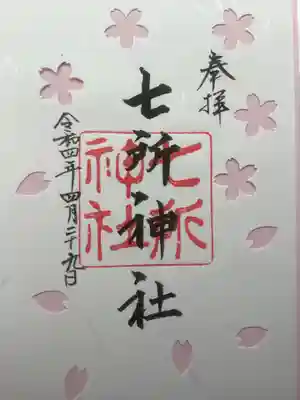 奉拝
七所神社
七所神社
令和四年四月二十九日